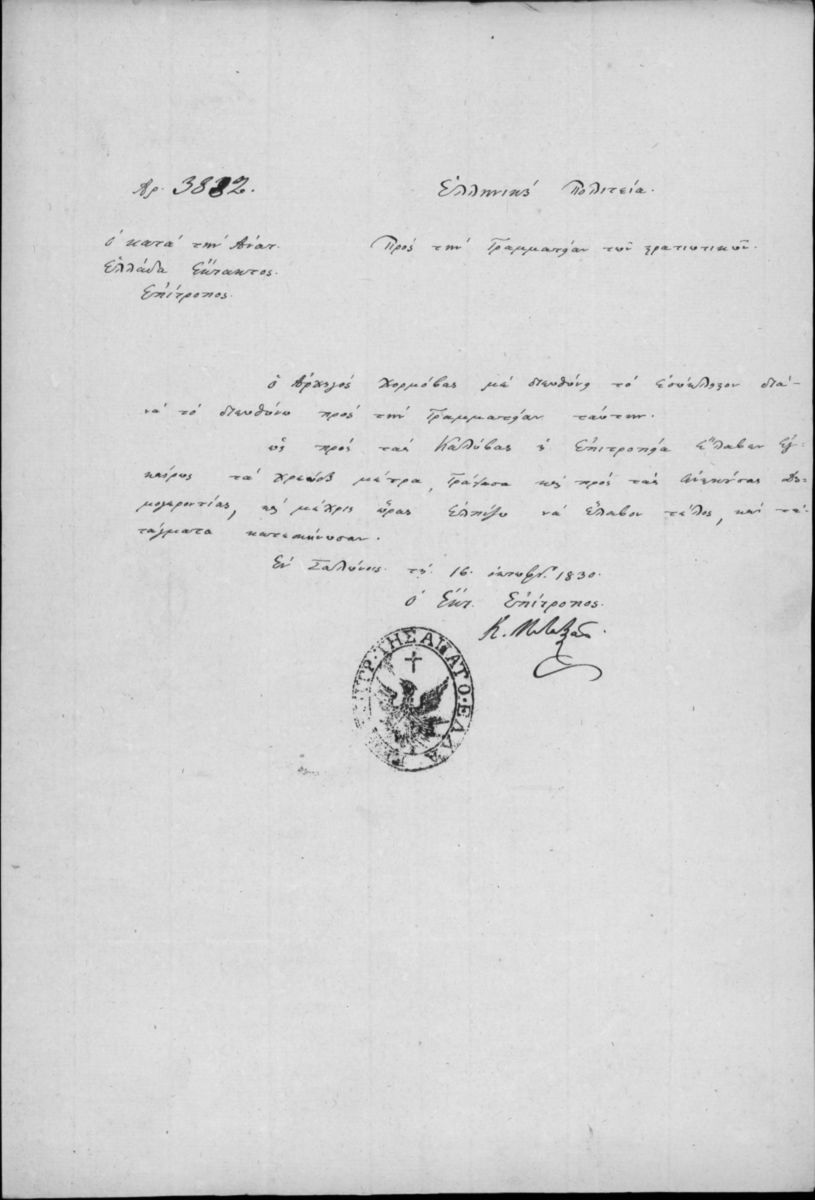 Αρ. 3882.
Ελληνική Πολιτεία.
Ο κατά την Ανατ.
Ελλάδα Έκτακτος
Επίτροπος.
Προς την Γραμματείαν των στρατιωτικών.
Ο Αρχηγός Χορμόβας με διευθύνει το εσώκλειστον δια-
να το διευθύνω προς την Γραμματείαν ταύτην.
ως προς τας Καλύβας η Επιτροπεία έλαβεν εγ-
καίρως τα μέτρα, έγραψα και προς τας Δη-
μογεροντίας, και μέχρις ώρας ελπίζω να έλαβον τέλος, και τα
τάγματα κατεσκήνωσαν.
Εν Σαλώνοις τη 16 οκτωβρ. 1830.
ο Έκτ. Επίτροπος.
Κ. Μεταξάς
ΤΗΣ ΑΝΑΤΟ. ΕΛΛΑ